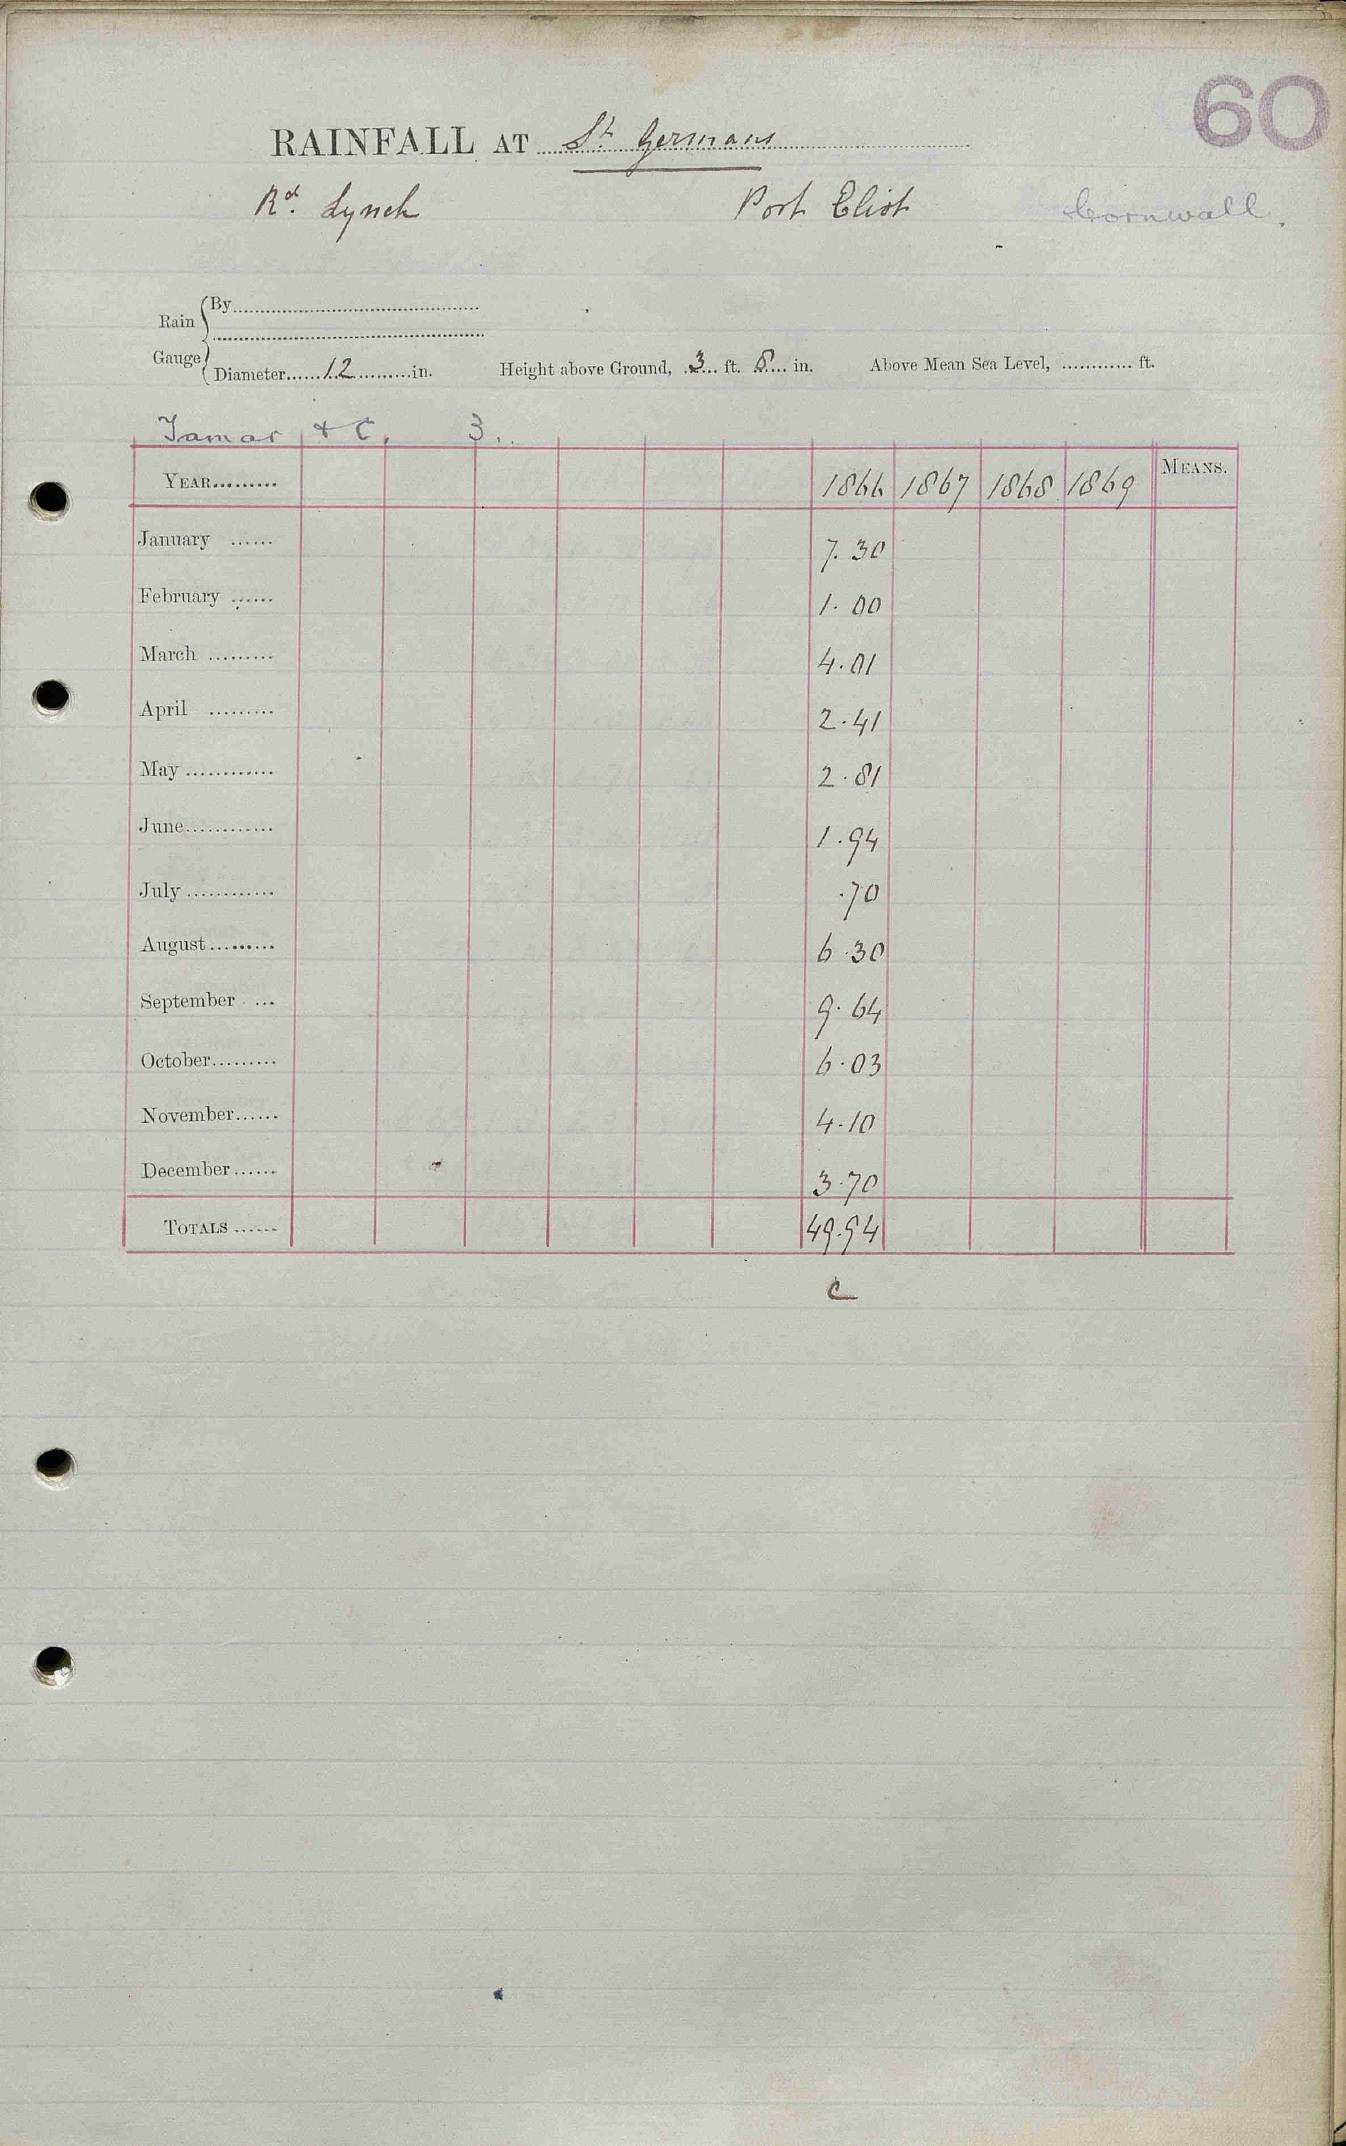 60
RAINFALL AT St Germans
Rd. Lynch Port Eliot Cornwall.
Rain Gauge { By
Diameter 12 in. Height above Ground, 3 ft. 8 in. Above Mean Sea Level, ft.
Tamar & C. 3.
YEAR 1866 1867 1868 1869 MEANS.
January 7.30
February 1.00
March 4.01
April 2.41
May 2.81
June 1.94
July .70
August 6.30
September 9.64
October 6.03
November 4.10
December 3.70
TOTALS 49.94
C